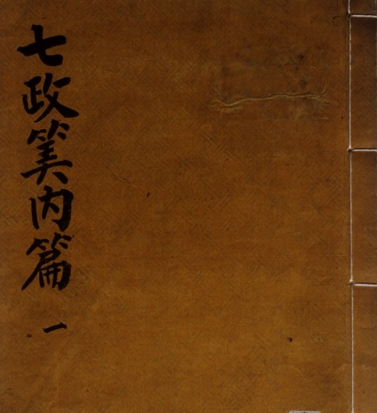 七政筭内篇 一